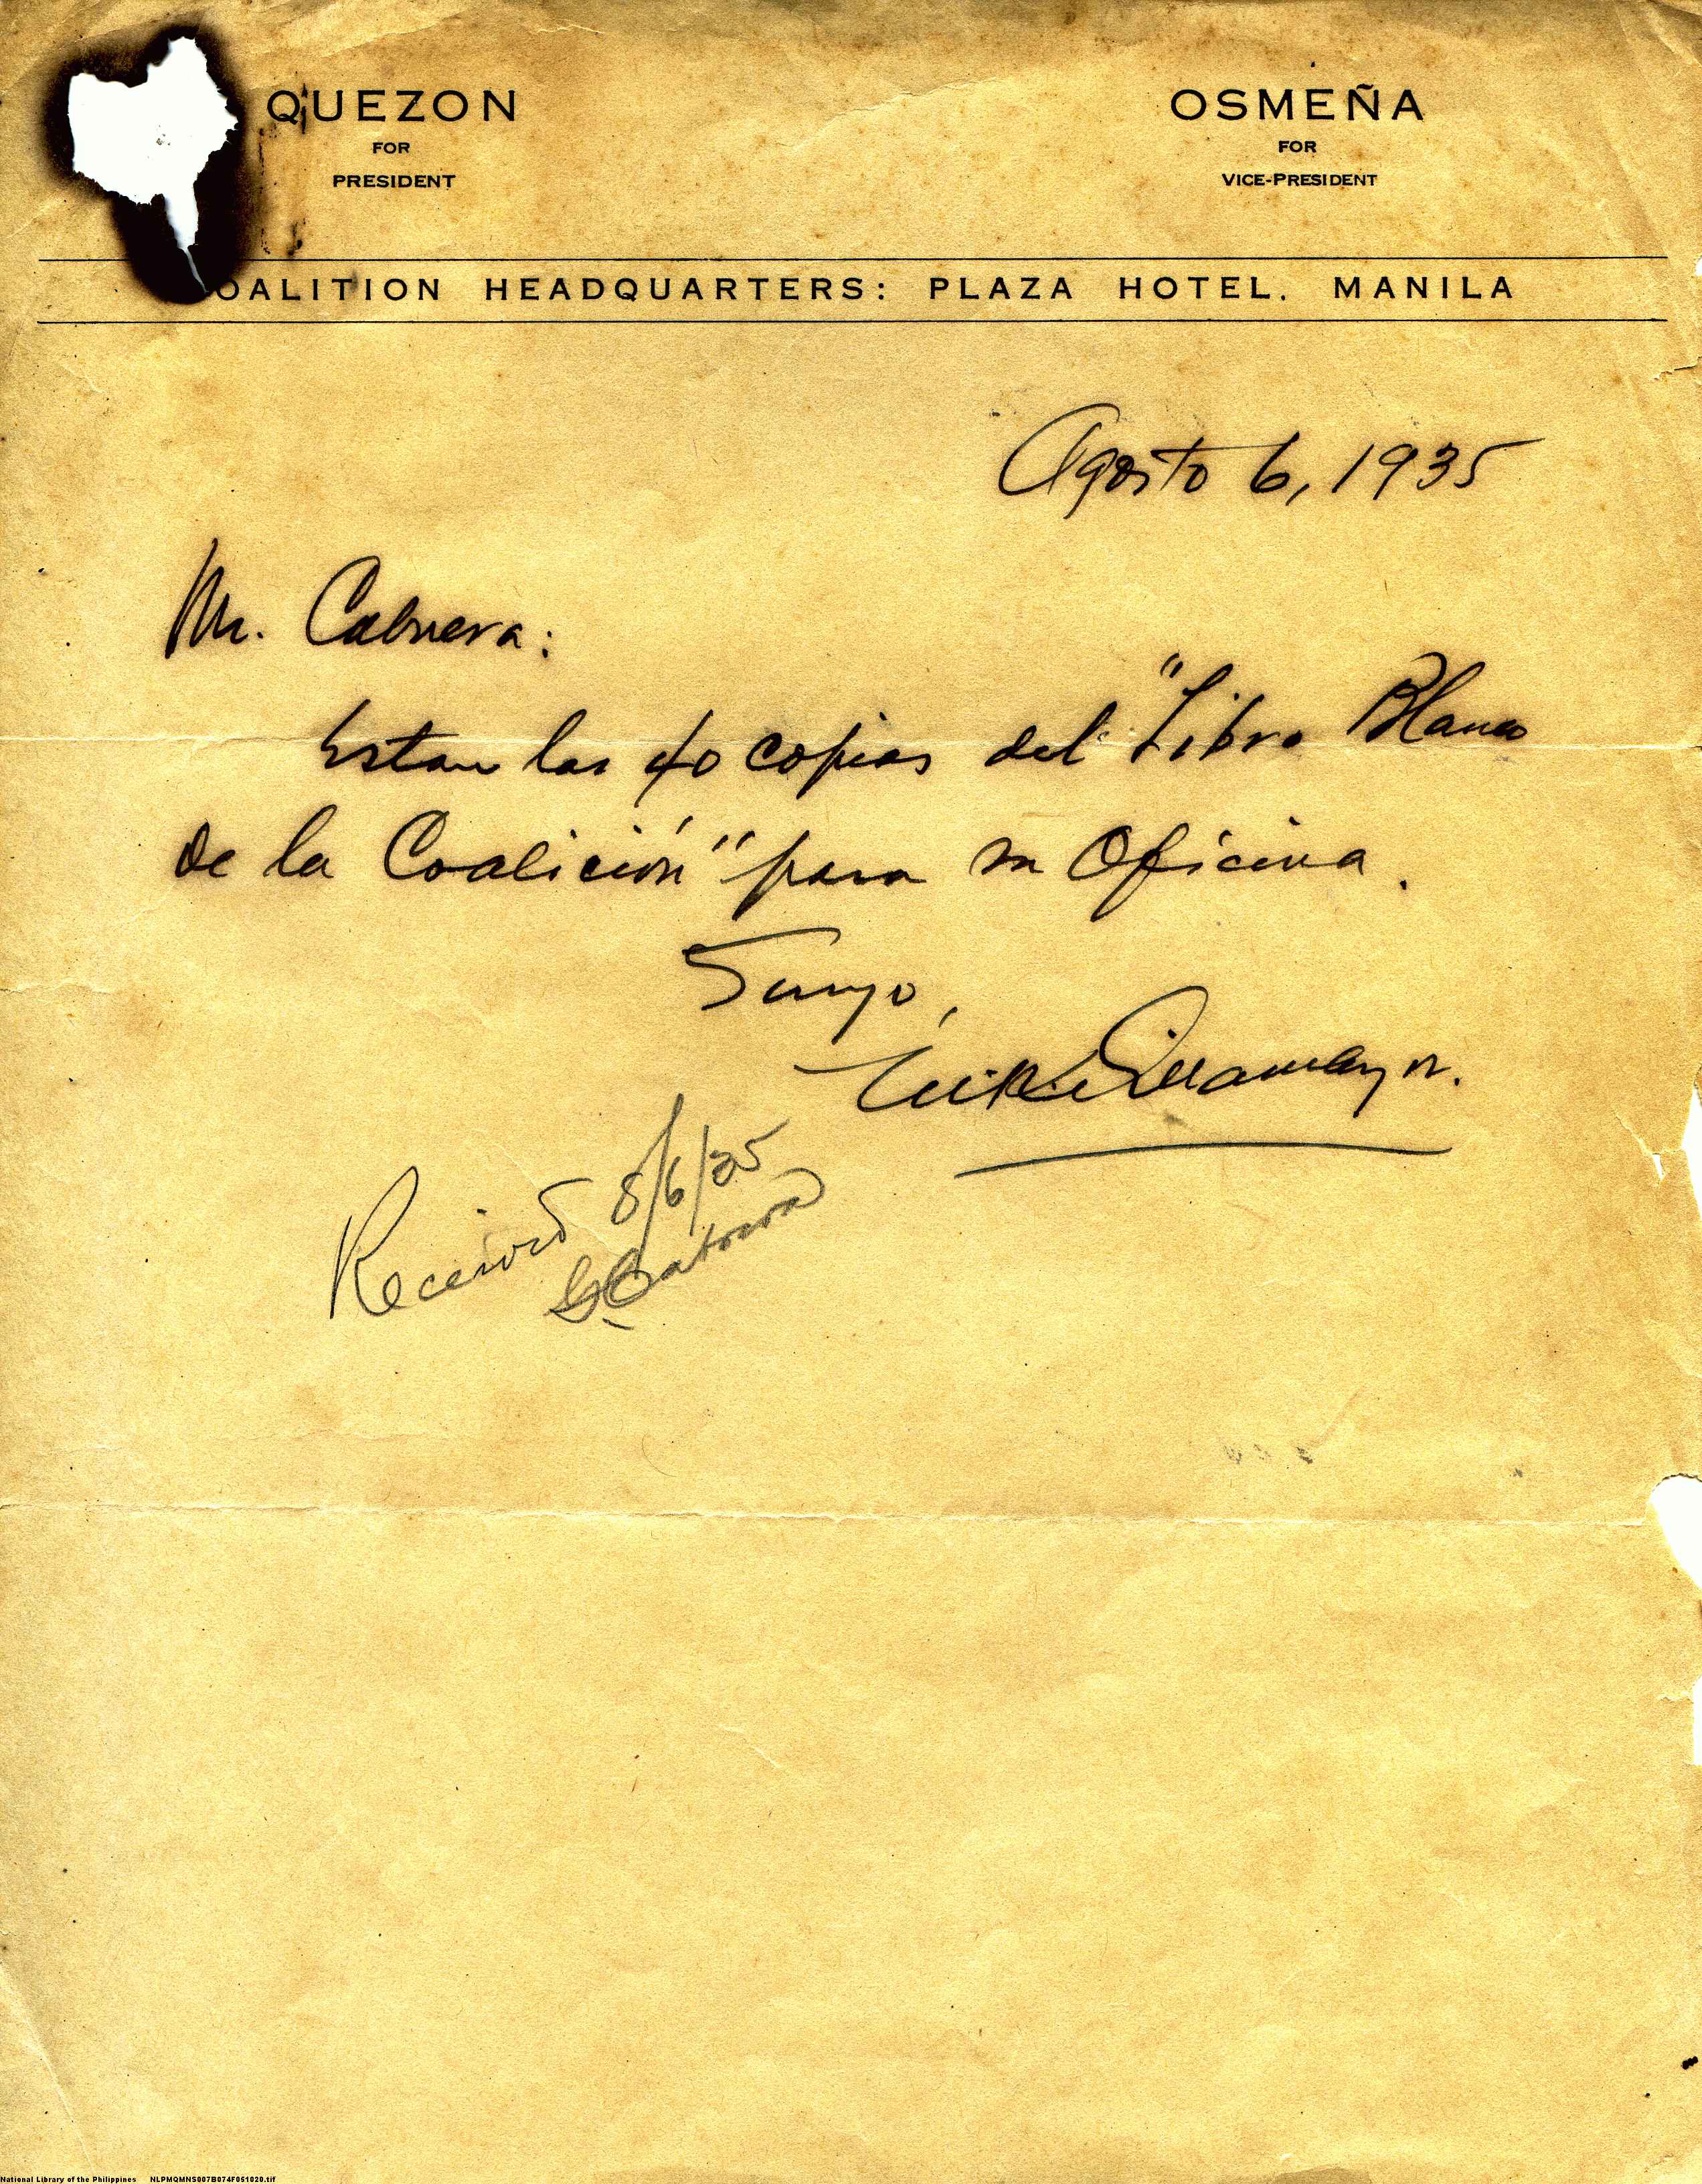 QUEZON
FOR
PRESIDENT
OSMEÑA
FOR
VICE-PRESIDENT
OALITION HEADQUARTERS: PLAZA HOTEL. MANILA
Agosto 6, 1935
Mr. Cabrera:
Estan las 40 copias del "Libro Blanco
de la Coalición" para su Oficina.
Suyo,
Received 8/6/35
National Library of the Philippines NLPMQMNS007B074F051020.tif